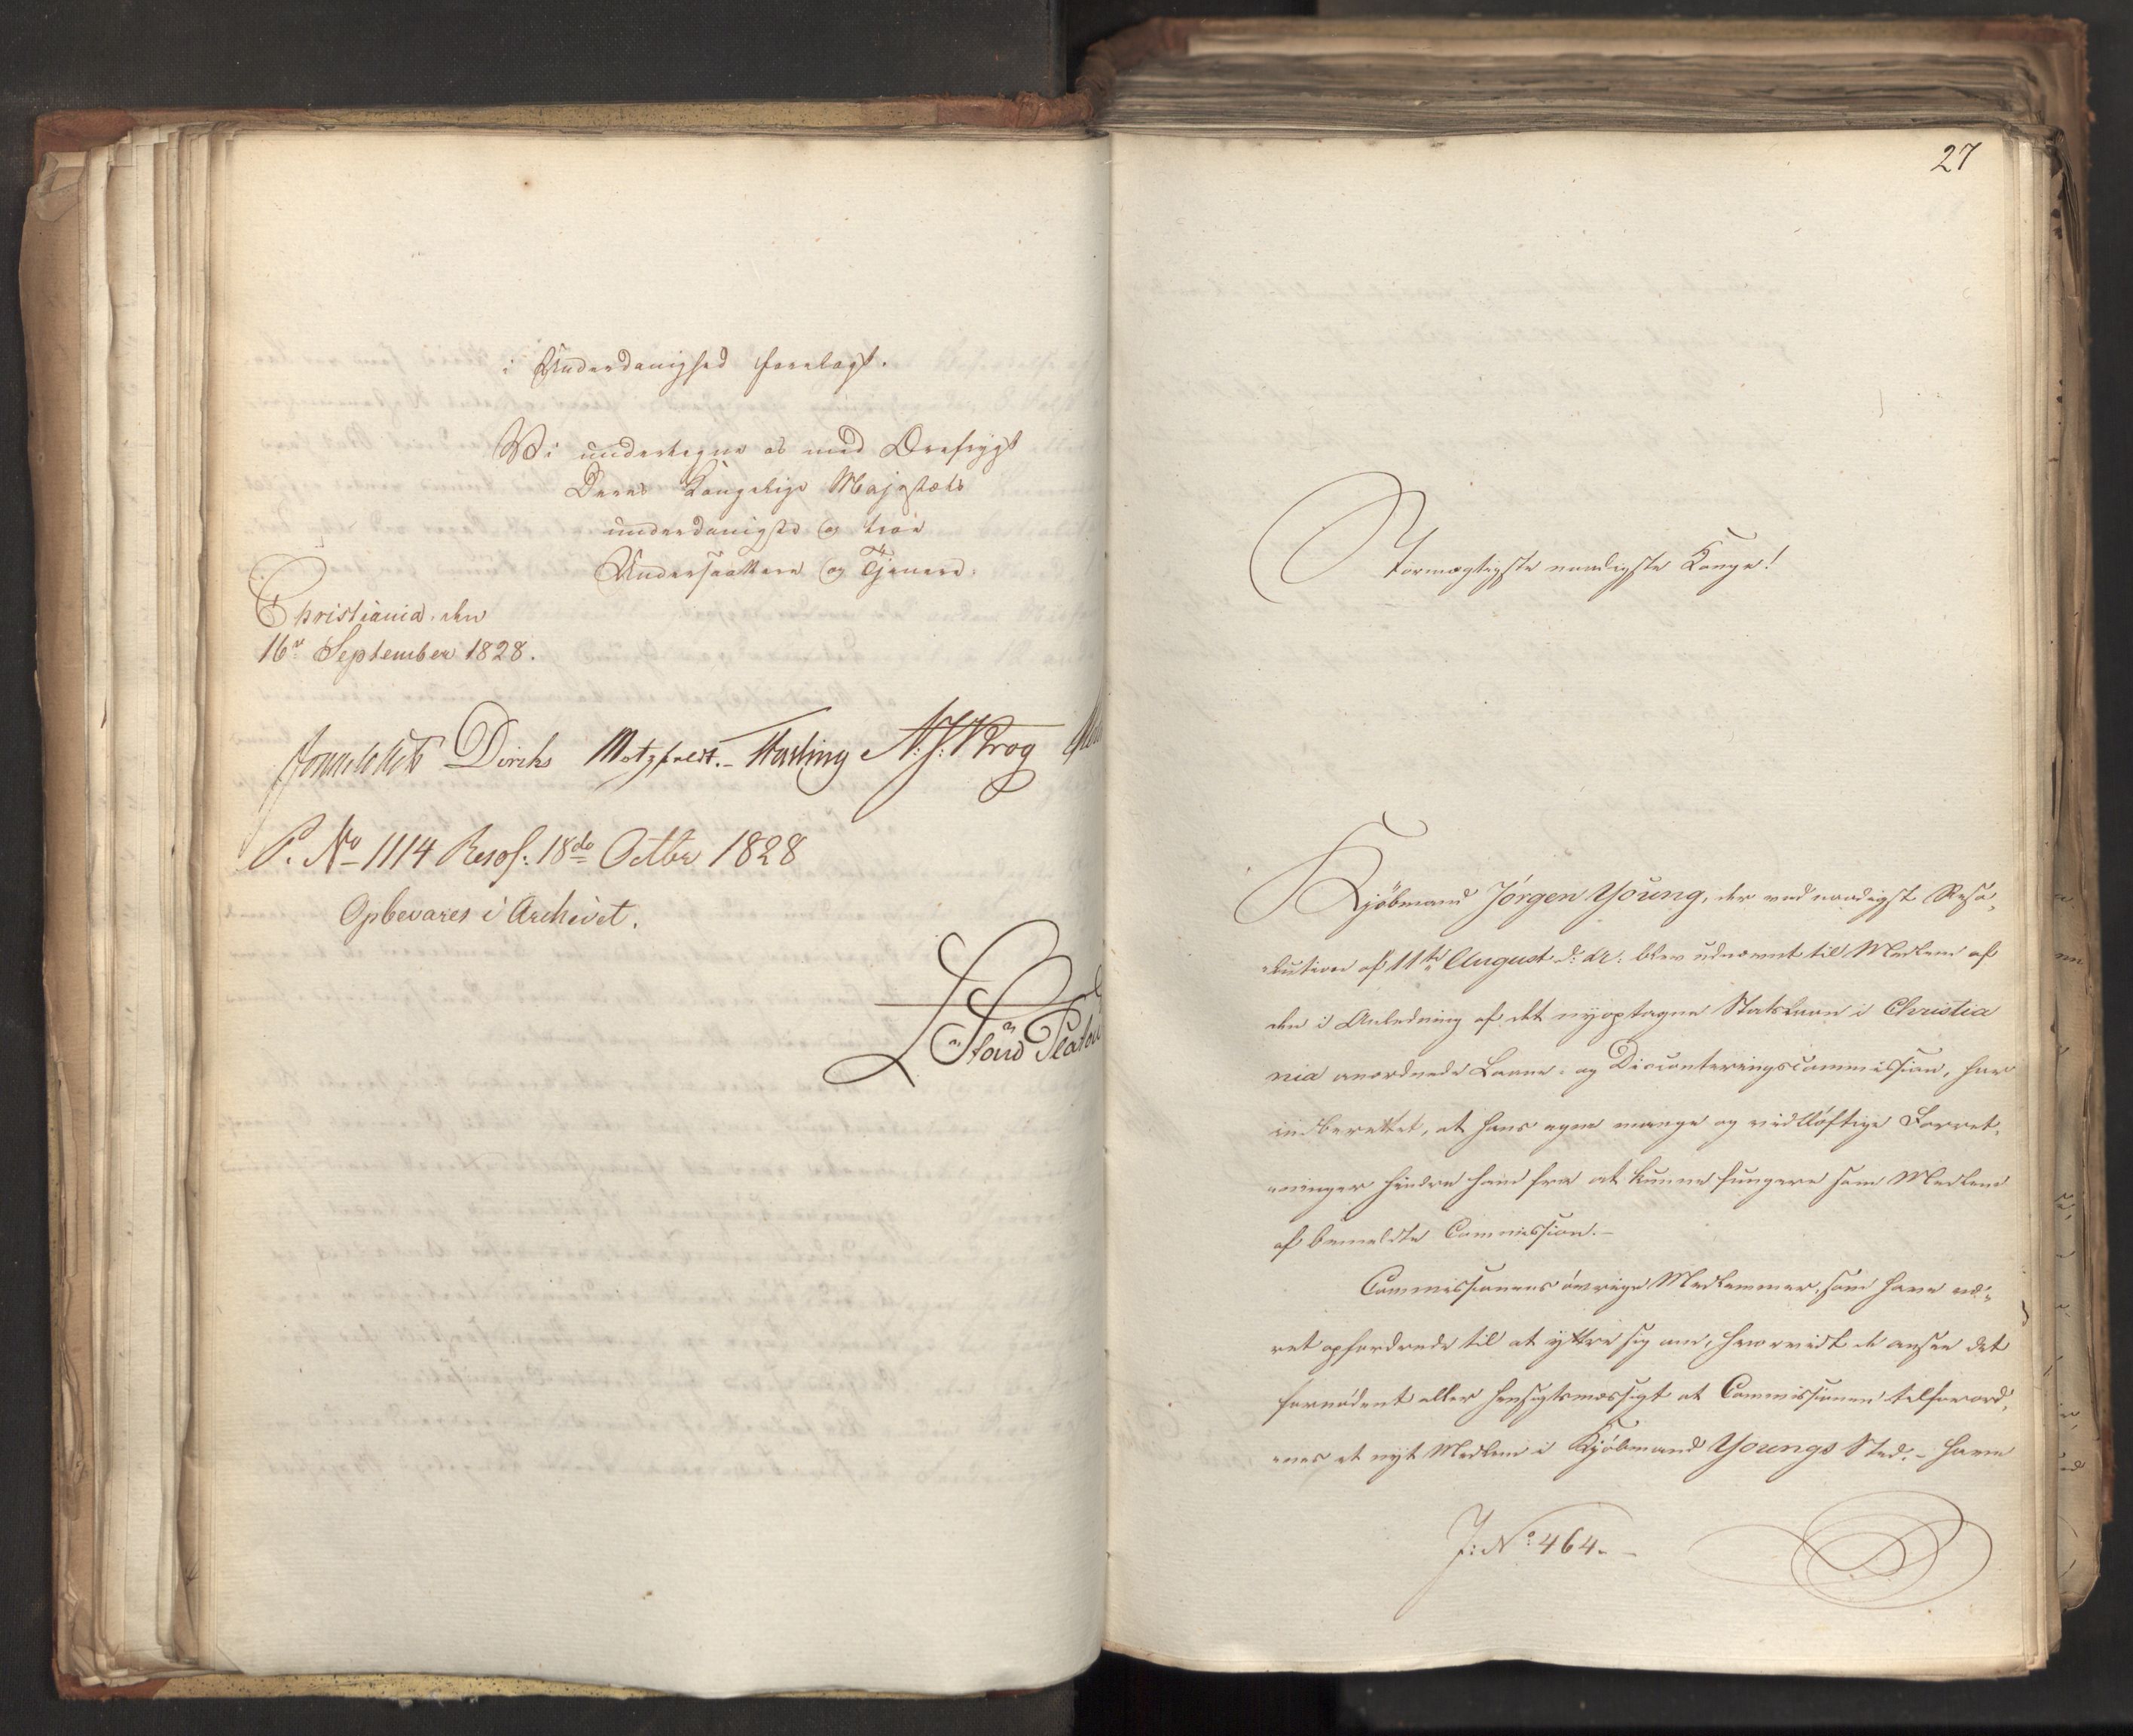 i Underdanighed forelagt.
Vi undertegne os med Ærefrygt
Deres Kongelige Majestæts
underdanigste og troe
Undersaattere og Tjenere.
Christiania den
16de September 1828.
Diriks Motzfeldt. Fasting N. J. Krog
P. No 1114 Resol: 18de Octbr 1828
Opbevares i Archivet.
27
Stormægtigste naadigste Konge!
Kjöbmand Jörgen Young, der ved naadigst Reso-
lution af 11te August d: Ar: blev udnævnt til Medlem af
den i Anledning af det nyoptagne Statslaan i Christia
nia anordnede Laane- og Disconteringscommission, har
indberettet, at hans egne mange og vidtlöftige Forret-
ninger hindre ham fra at kunne fungere som Medlem
af bemeldte Commission.-
Commissionens övrige Medlemmer, som have væ-
ret opfordrede til at yttre sig om, hvorvidt de ansee det
fornödent eller hensigtsmæssigt at Commissionen tilforord-
nes et nyt Medlem i Kjöbmand Youngs Sted, - have
J: No 464.-